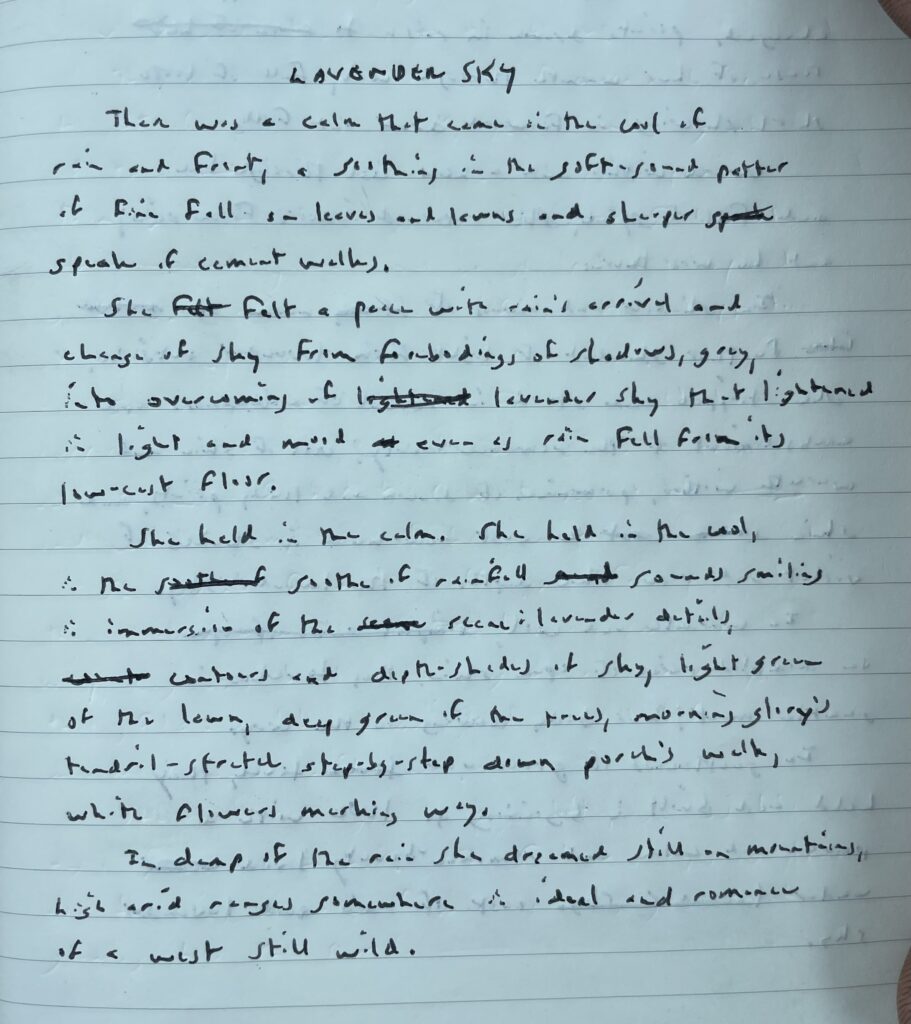 LAVENDER SKY
There was a calm that came in the cool of
rain and front, a soothing in the soft-sound patter
of fine fall on leaves and lawns and sharper speak
speak of cement walks.
She felt felt a peace with rain's arrival and
change of sky from forebodings of shadows, grey,
into overcoming of lightened lavender sky that lightened
in light and mood even as rain fell from its
low-cast floor.
She held in the calm. She held in the cool,
in the soothe of rainfall sounds smiling
in immersion of the scene: lavender details,
contours and depth-shades of sky, light green
of the lawn, deep green of the trees, morning glory's
tendril-stretch step-by-step down porch's walk,
white flowers marking way.
In damp of the rain she dreamed still on mountains,
high arid ranges somewhere in ideal and romance
of a west still wild.